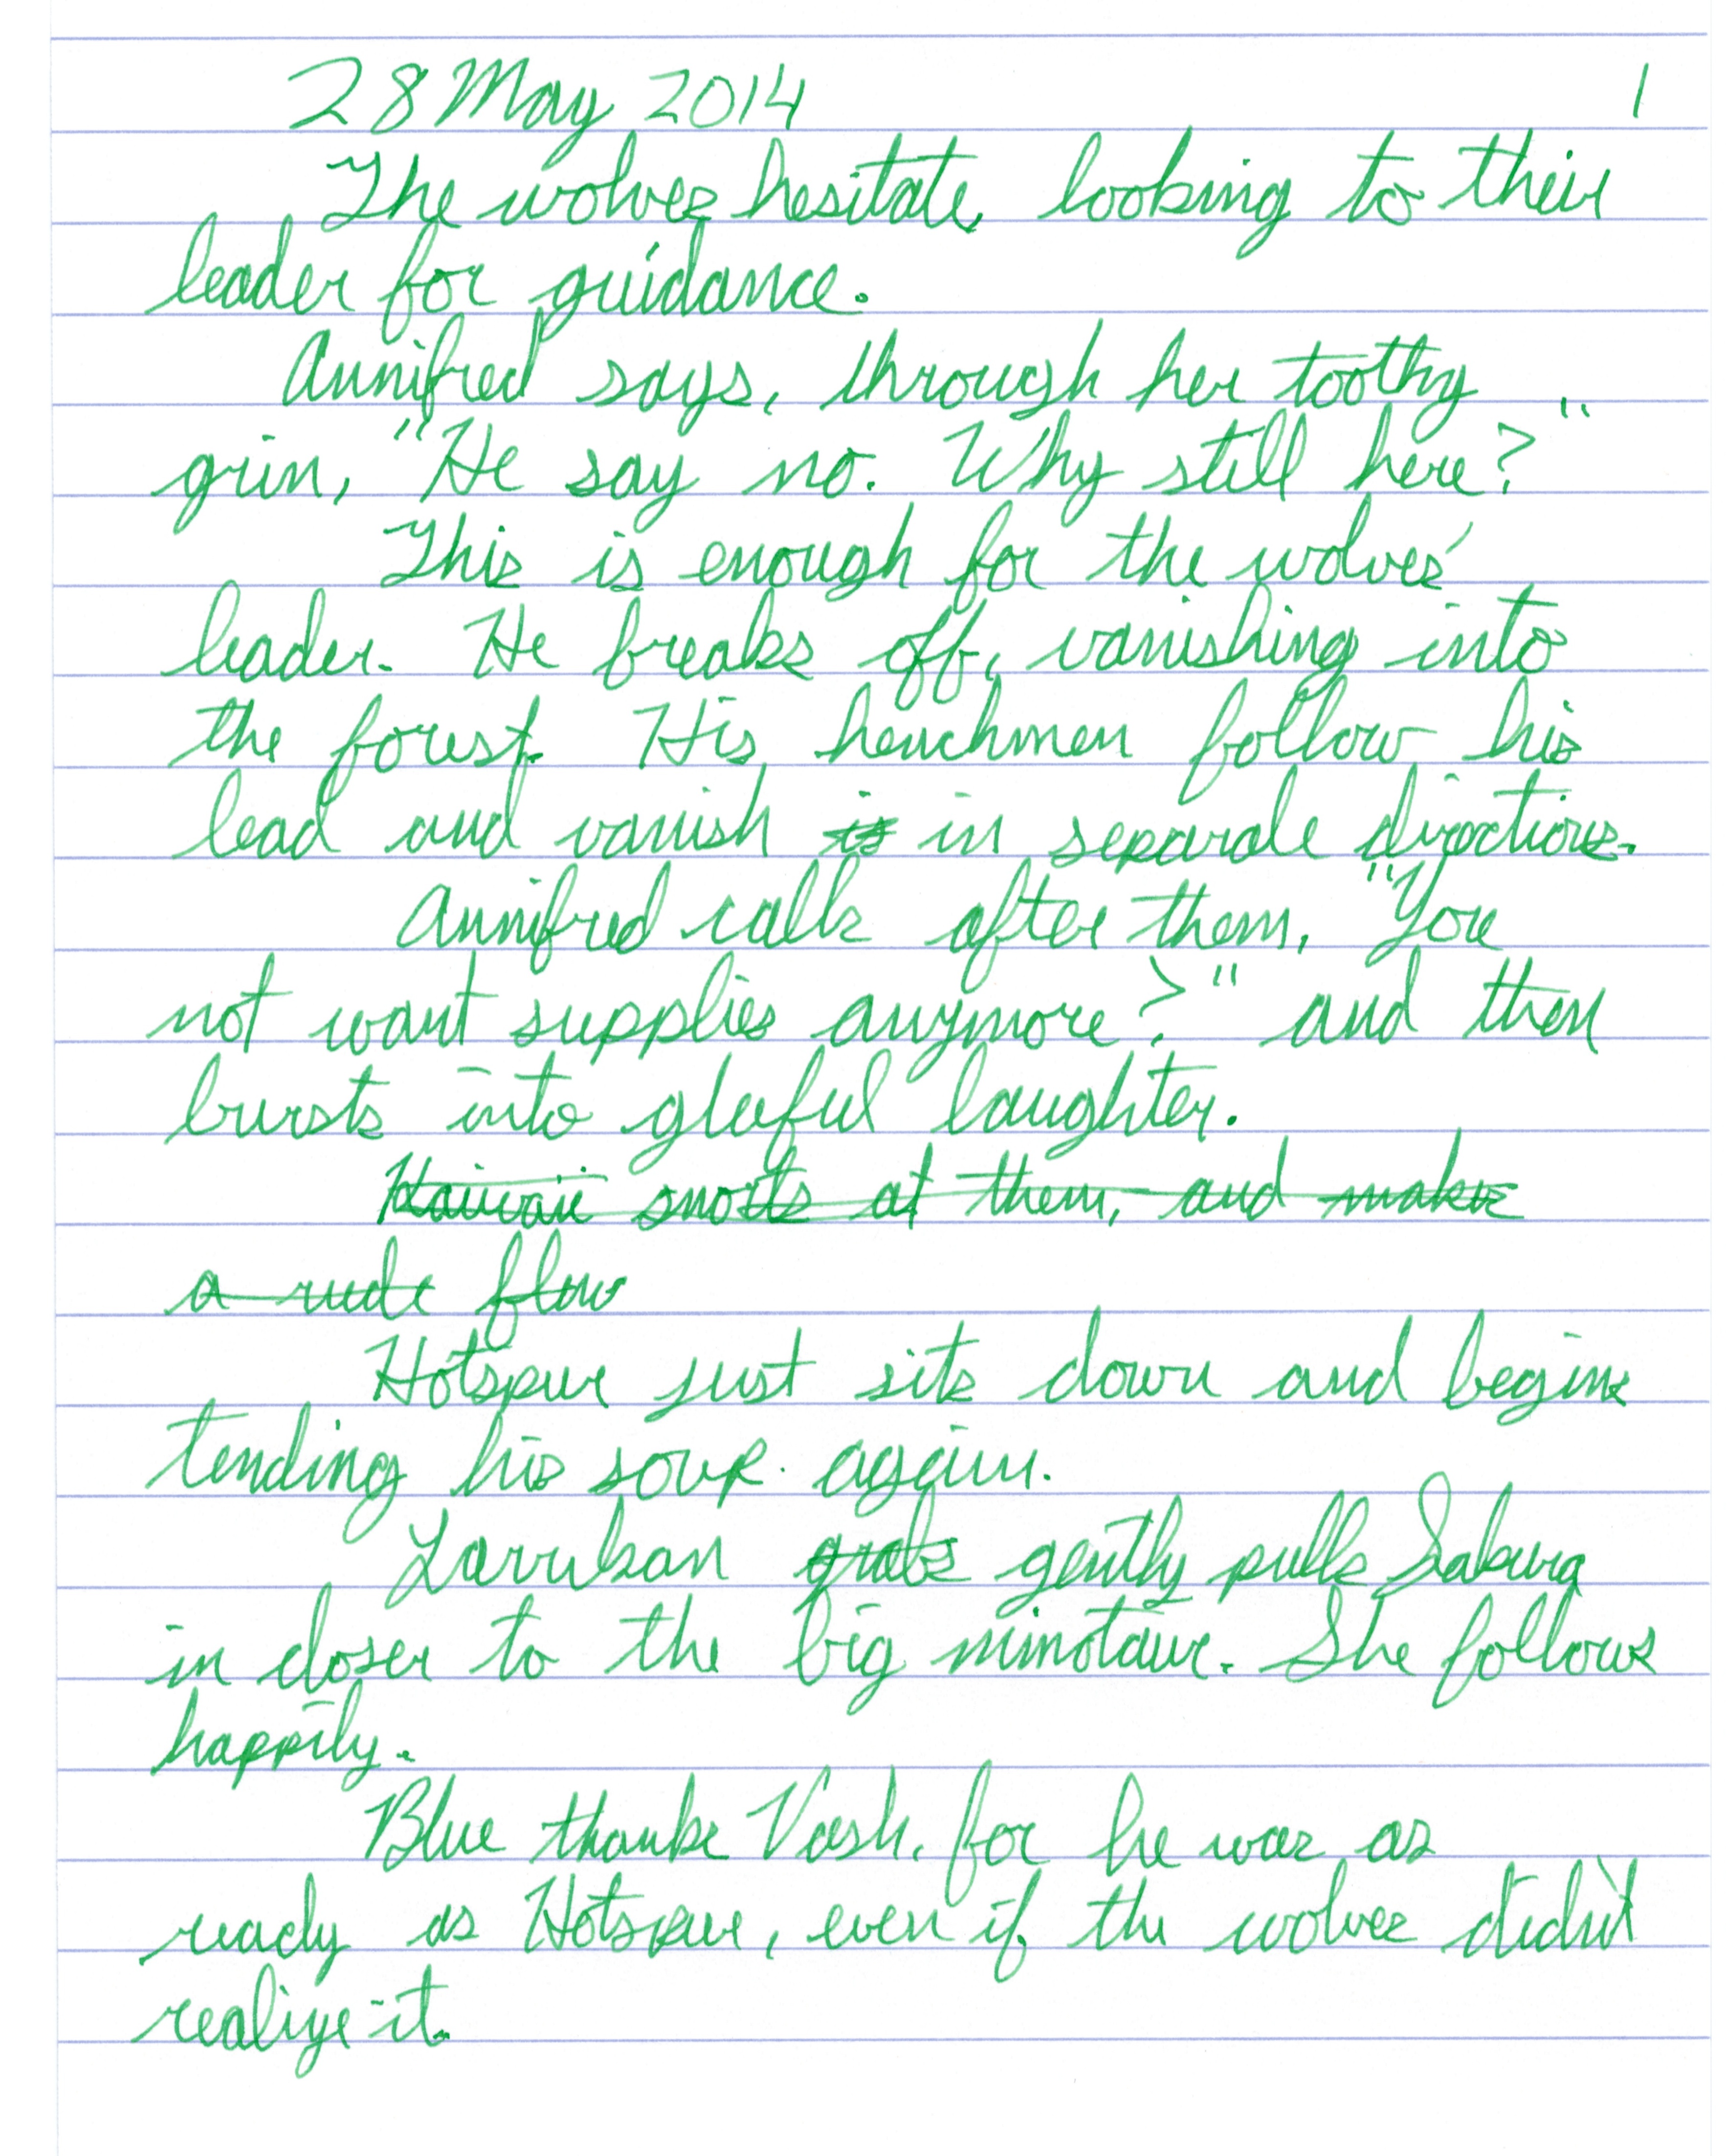 28 May 2014 1
The wolves hesitate, looking to their
leader for guidance.
Annifred says, through her toothy
grin, "He say no. Why still here?"
This is enough for the wolves'
leader. He breaks off, vanishing into
the forest. His henchmen follow his
lead and vanish is in separate directions.
Annifred calls after them, "You
not want supplies anymore?" and then
bursts into gleeful laughter.
Kaiwaii snorts at them, and makes
a rude flow
Hotspur just sits down and begins
tending his soup again.
Larrikan grabs gently pulls Sakura
in closer to the big minotaur. She follows
happily.
Blue thanks Vash, for he was as
ready as Hotspur, even if the wolves didn't
realize it.